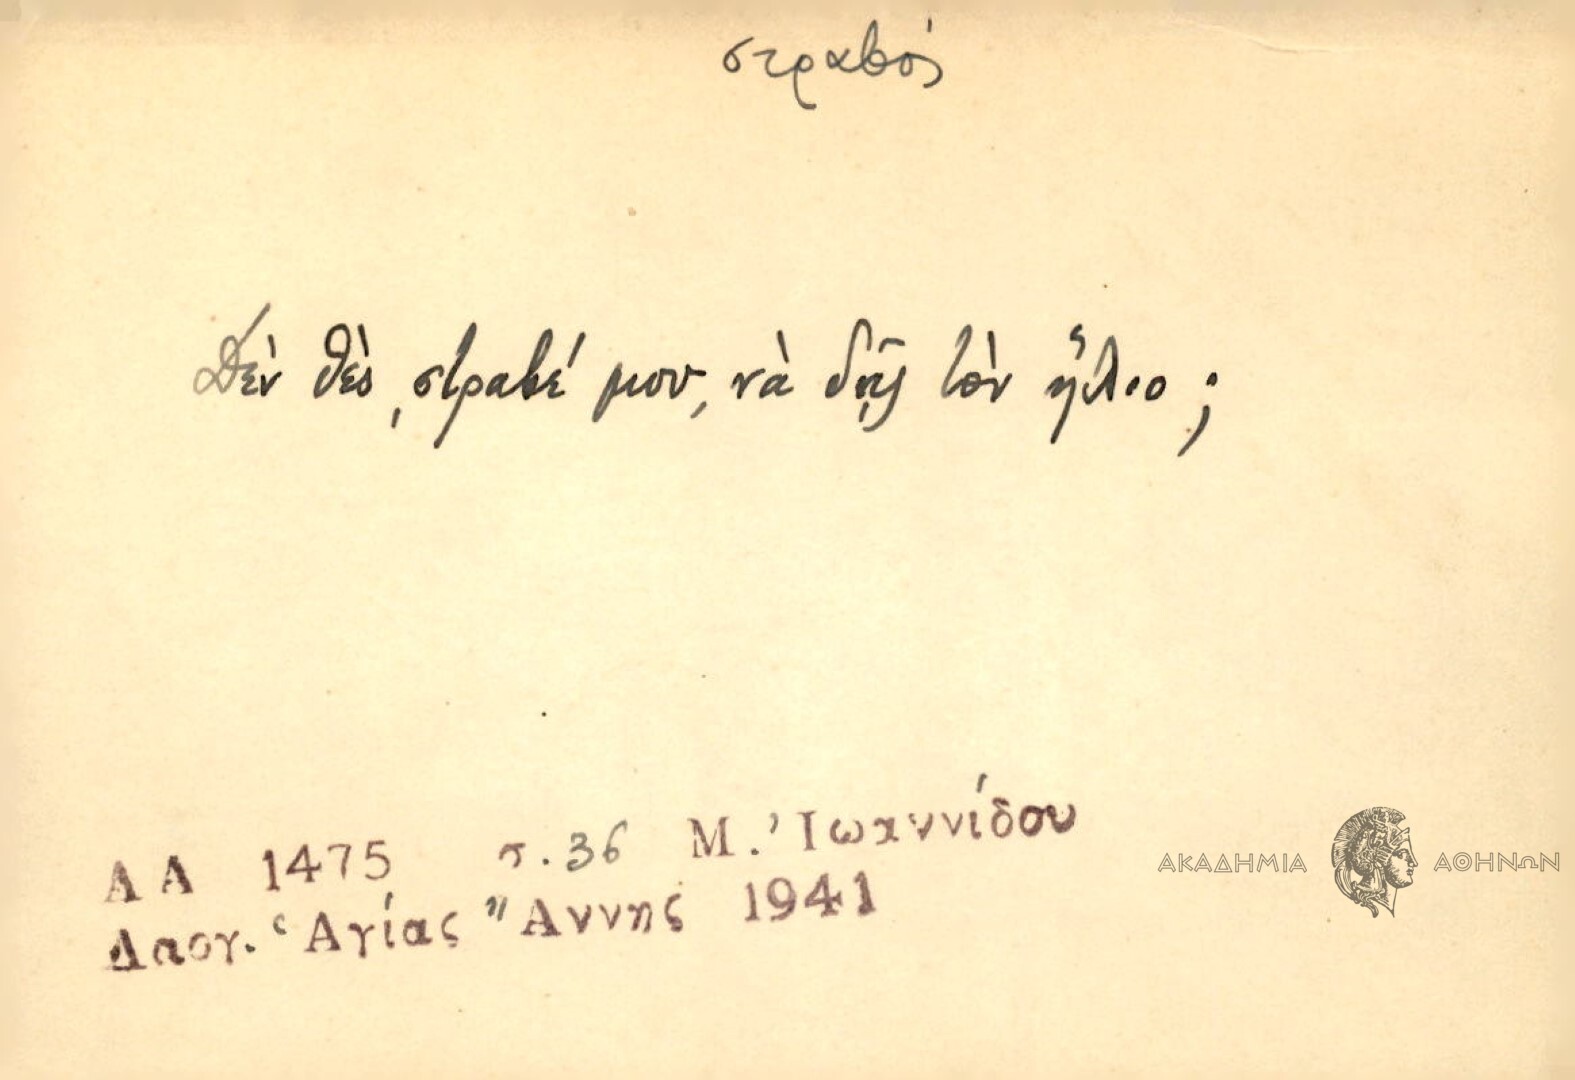 στραβός
Δὲν θὲς, στραβέ μου, νὰ δῇς τὸν ἥλιο;
ΛΑ 1475 σ. 36 Μ. Ἰωαννίδου
Λαογ. Ἁγίας Ἄννης 1941
ΑΚΑΔΗΜΙΑ ΑΘΗΝΩΝ